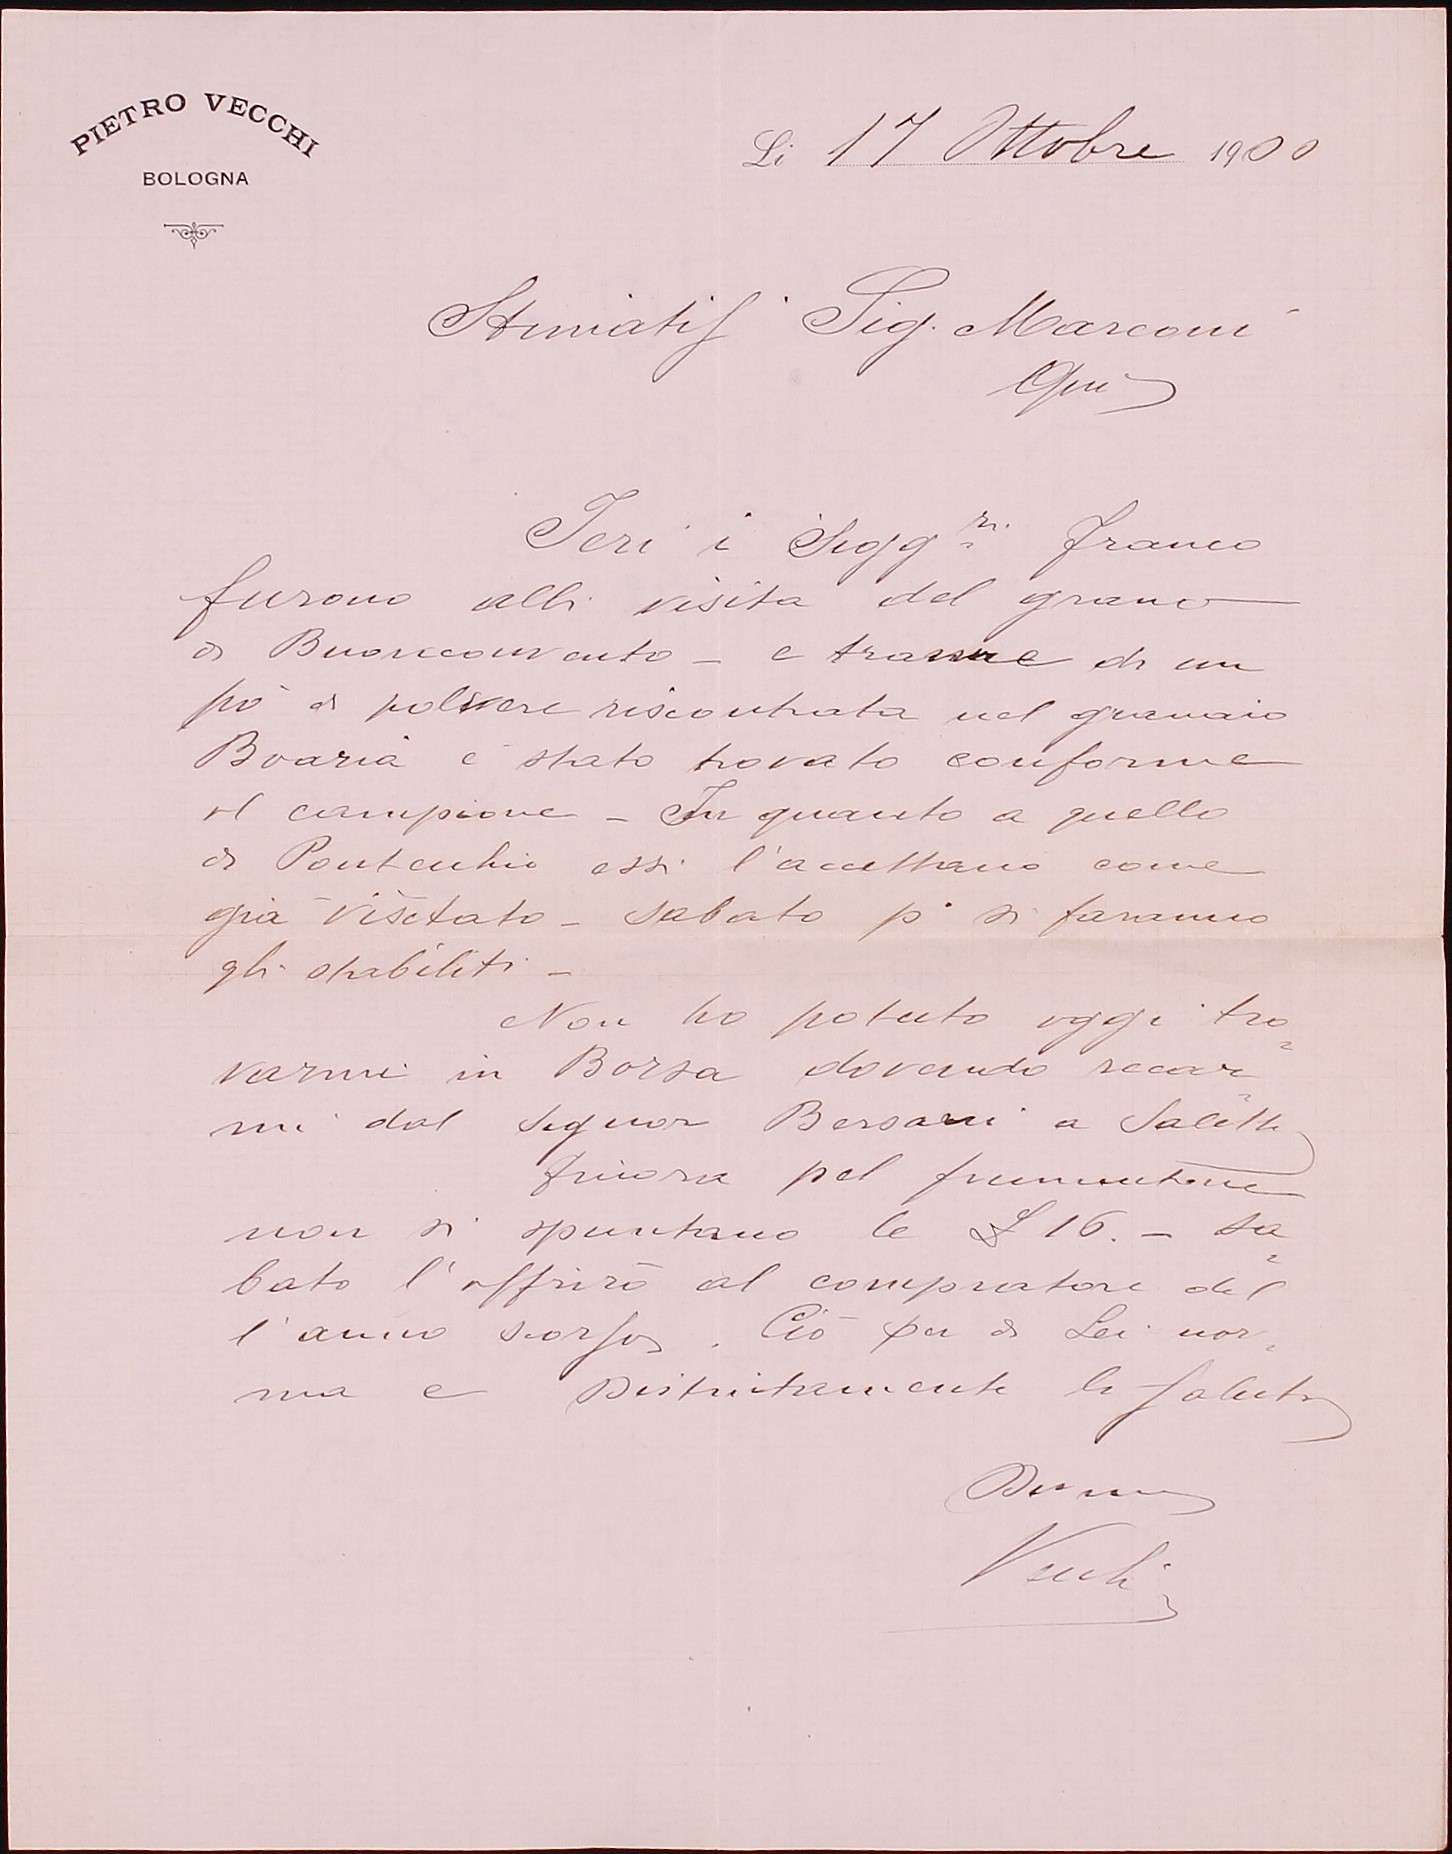 PIETRO VECCHI
BOLOGNA
Li 17 Ottobre 1900
Stimatiss Sig. Marconi
Qui
Ieri i Sigg.ri Franco
furono alla visita del grano
di Buonconvento _ e tranne di un
pò di polvere riscontrata nel granaio
Boaria è stato trovato conforme
al campione _ In quanto a quello
di Pontecchio essi l'accettano come
già visitato _ sabato p° si faranno
gli stabiliti _
Non ho potuto oggi tro=
varmi in Borsa dovendo recar=
mi dal Signor Bersani a Saletto
Finora pel frumentone
non si spuntano le £ 16. _ sa=
bato l'offrirò al compratore del
l'anno scorso. Ciò per di Lei nor=
ma e distintamente la saluto
Vecchi